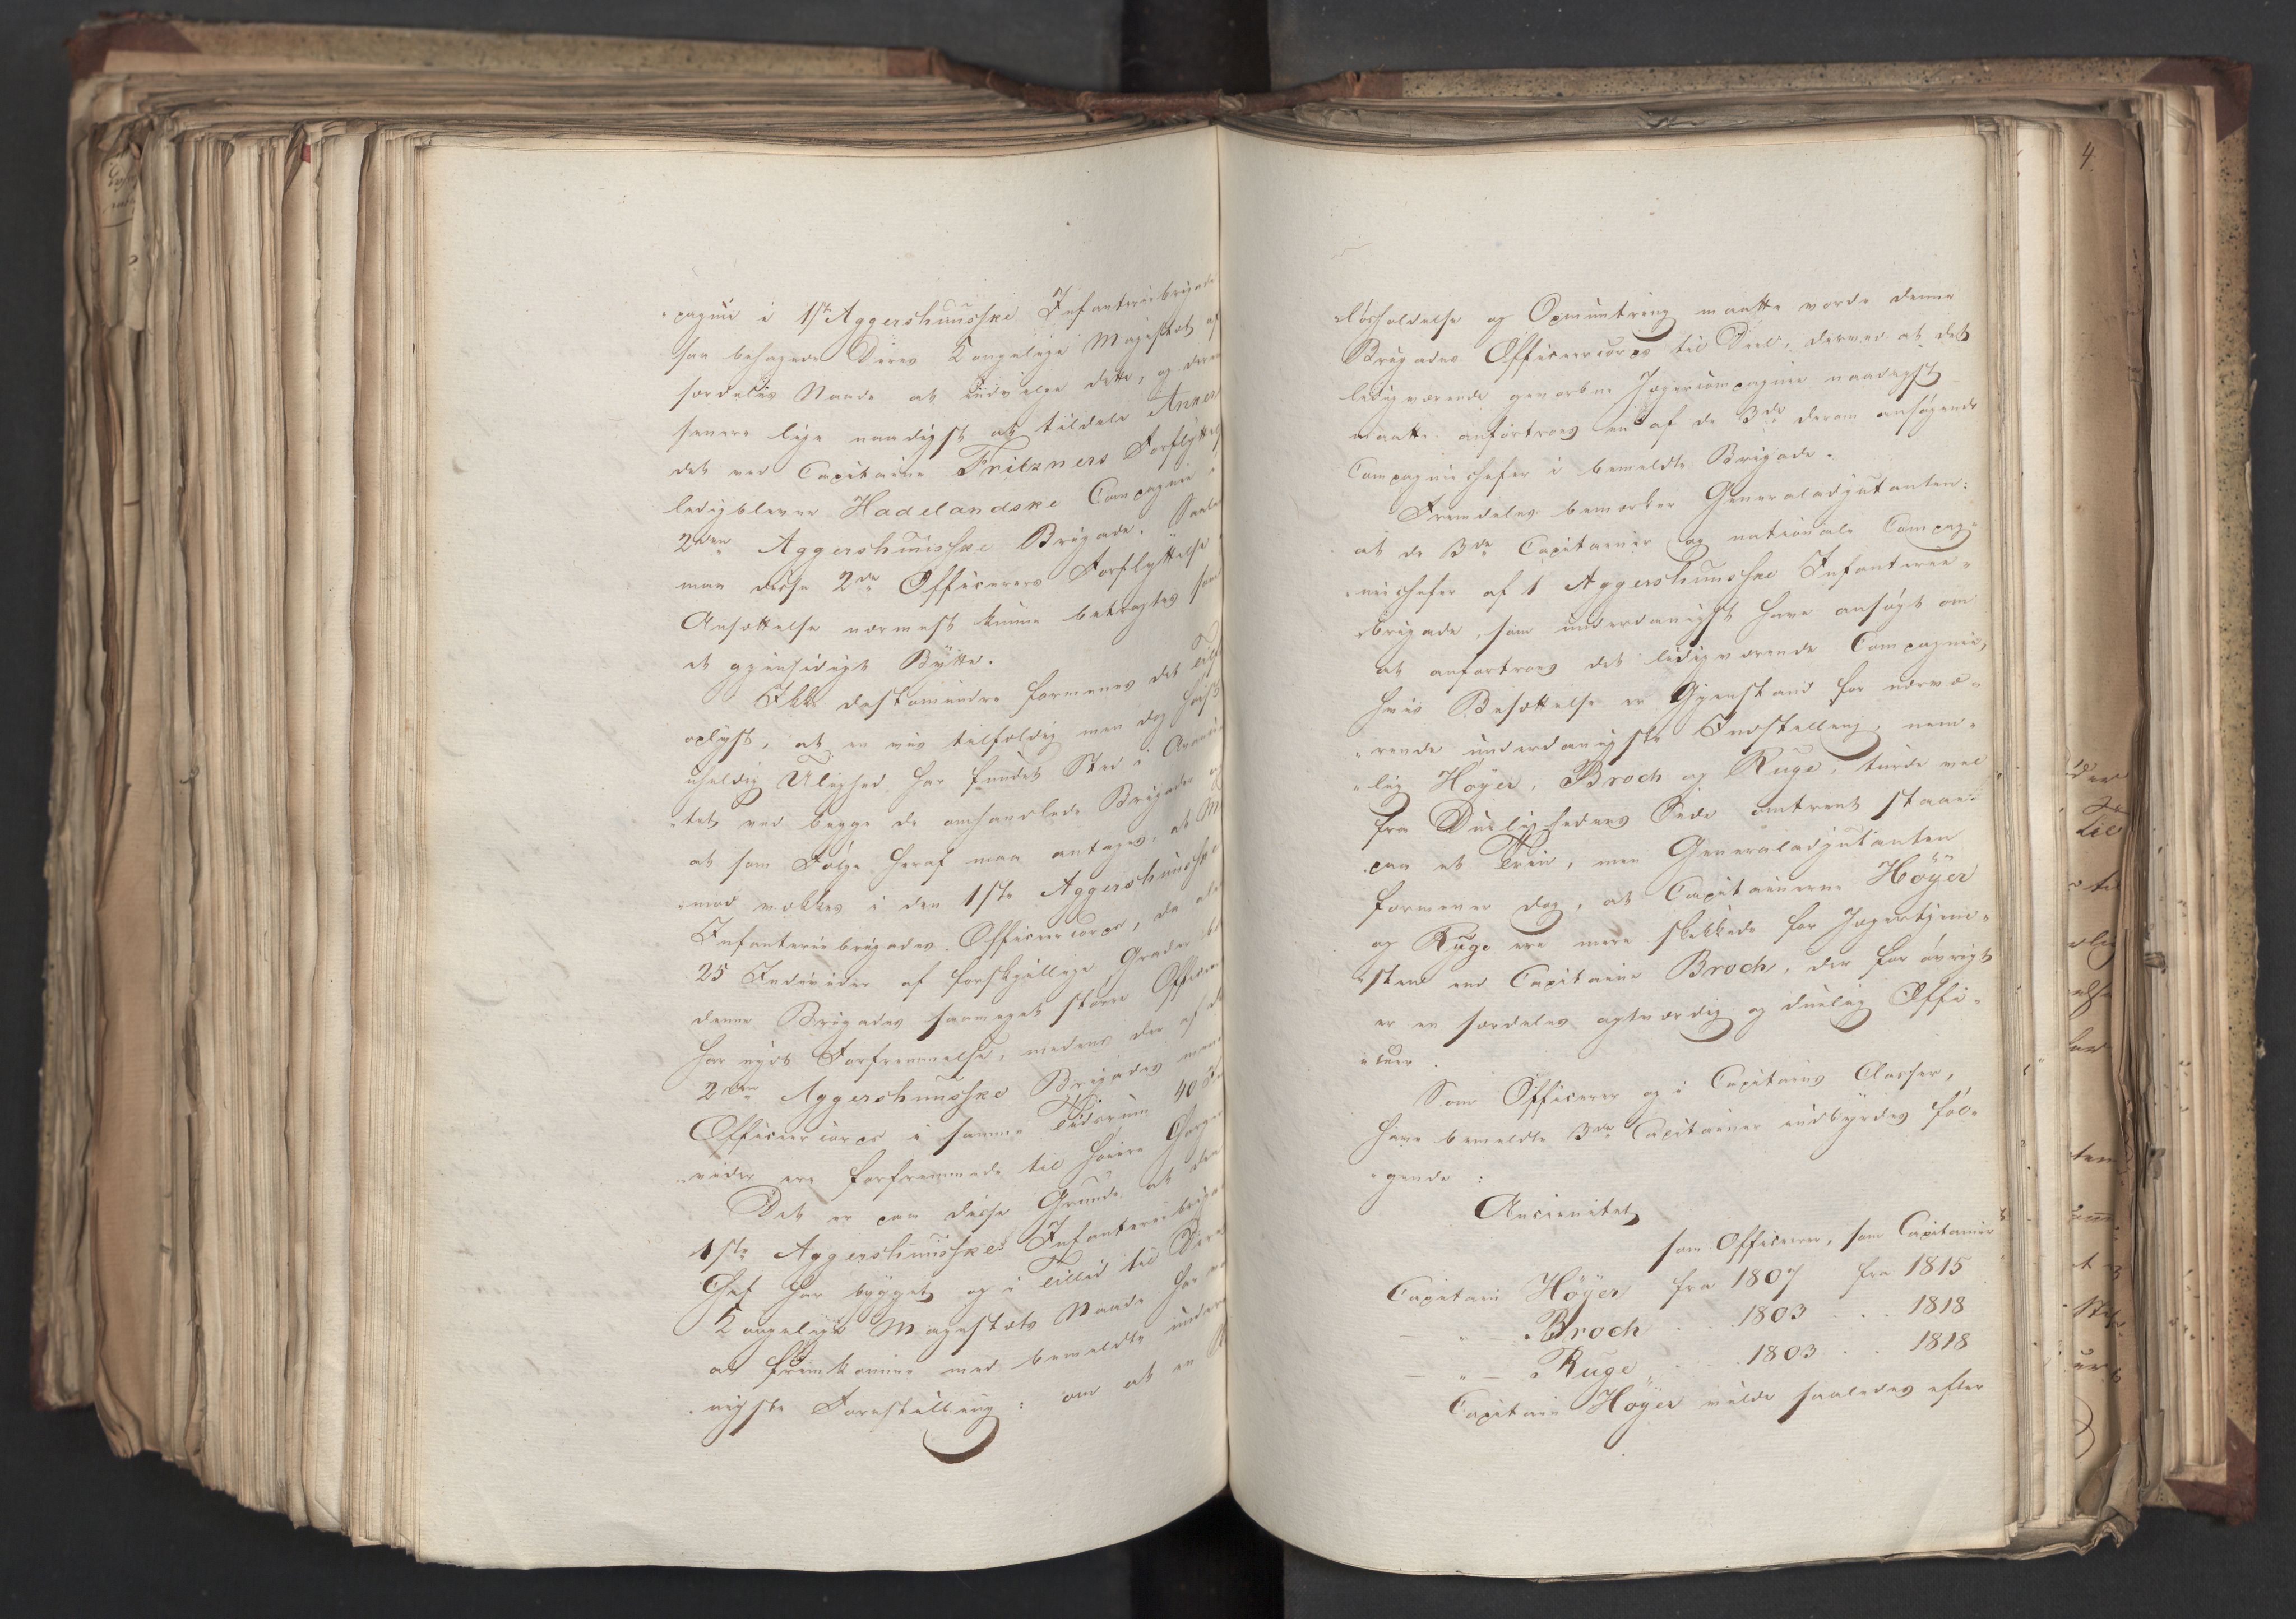 pagnie i 1ste Aggershuusske Infanteriebrigade
saa behagede Deres Kongelige Majestæt af
særdeles Naade at udvælge dette, og derm
senere lige naadigst at tildele Anker
det ved Capitaine Fritzners Forflyttelse
ledigblevne Hadelandske Compagnie i
2den Aggershuusske Brigade. Saaledes
maa disse 2de Officerers Forflyttelse
Ansættelse nærmest kunne betragtes som
et gjensidigt Bytte.
Ikke destomindre formenes det
oplyst, at en vis tilfældig men dog høist
uheldig Ulighed har fundet Sted i Avance
"tet ved begge de omhandlede Brigader og
at som Følge heraf maa antages, at M
"mod vækkes i den 1ste Aggershuusske
Infanteriebrigades Officeercorps, da alene
25 Individer af forskjellige Grader
denne Brigades saameget større Officeer
har nydt Forfremmelse, medens der af
2den Aggershuusske Brigades
Officeercorps i samme Tidsrum 40
"vider ere forfremmede til høiere Charger
Det er paa disse Grunde at den
1ste Aggershuusske Infanteriebrigades
Chef har bygget og i Tillid til Deres
Kongelige Majestæts Naade har
at fremkomme med bemeldte under
"nigste Forestilling: om at en
"løsholdelse og Opmuntring maatte vorde denne
Brigades Officeercorps til Deel, derved at det
ledigværende gevorbne Jægercompagnie naadigst
maatte anfortroes en af de 3de derom ansøgende
Compagniechefer i bemeldte Brigade.
Fremdeles bemærker Generaladjutanten:
at de 3de Capitainer og nationale Compag"
"niechefer af 1 Aggershuusske Infanterie"
"brigade, som underdanigst have ansøgt om
at anfortroes det ledigværende Compagnie,
hvis Besættelse er Gjenstand for nærvæ"
"rende underdanigste Indstilling, nem"
"lig Höyer, Broch og Ruge, turde vel
fra Duelighedens Side omtrent staae
paa et Trin, men Generaladjutanten
formener dog, at Capitainerne Höyer
og Ruge ere mere skikkede for Jægertjene"
"sten end Capitaine Broch, der for øvrigt
er en særdeles agtværdig og duelig Offi"
"ceer.
Som Officerer og i Capitains Classer,
have bemeldte 3de Capitainer indbyrdes føl"
"gende:
Ancienitet
som Officerer, som Capitainer
Capitain Höyer fra 1807 fra 1815
— " — Broch . . 1803 . . 1818
— " — Ruge . . 1803 . . 1818
Capitain Höyer vilde saaledes efter